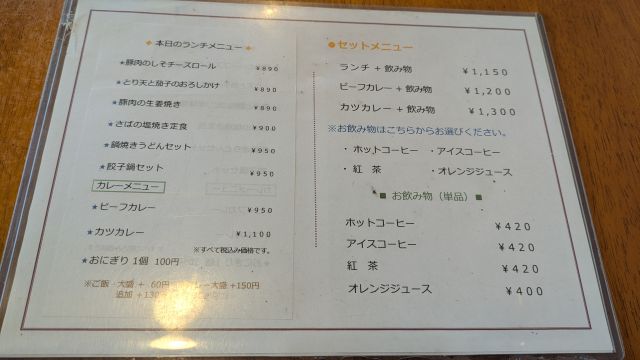 ◆ 本日のランチメニュー ◆
★豚肉のしそチーズロール ¥890
★とり天と茄子のおろしかけ ¥890
★豚肉の生姜焼き ¥890
★さばの塩焼き定食 ¥900
★鍋焼きうどんセット ¥950
★餃子鍋セット ¥950
カレーメニュー
★ビーフカレー ¥950
★カツカレー ¥1,100
※すべて税込み価格です。
★おにぎり 1個 100円
※ご飯 大盛 + 60円 カレー大盛 +150円
追加 +130
●セットメニュー
ランチ + 飲み物 ¥1,150
ビーフカレー + 飲み物 ¥1,200
カツカレー + 飲み物 ¥1,300
※お飲み物はこちらからお選びください。
・ホットコーヒー ・アイスコーヒー
・紅 茶 ・オレンジジュース
■ お飲み物(単品) ■
ホットコーヒー ¥420
アイスコーヒー ¥420
紅 茶 ¥420
オレンジジュース ¥400